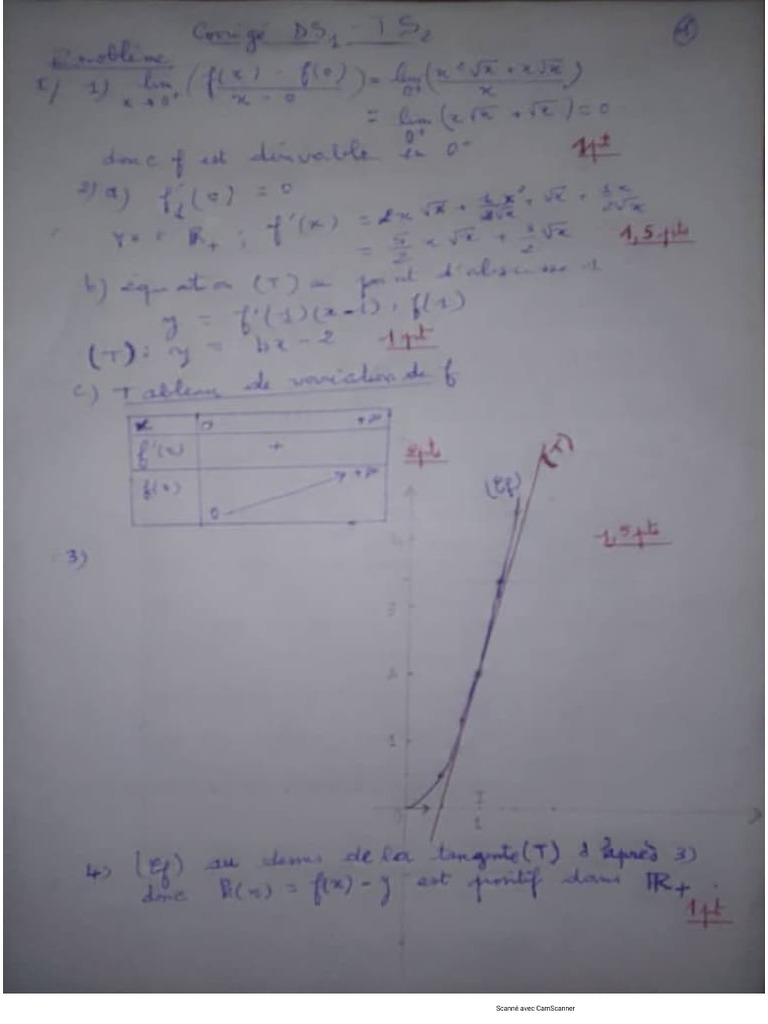 Corrigé DS1 - TS2
Problème
I/ 1) lim x→0⁺ (f(x) - f(0) / x - 0) = lim 0⁺ (x²√x + x√x / x)
= lim 0⁺ (x√x + √x) = 0
donc f est dérivable en 0⁺ 1pt
2) a) f'(0) = 0
R₊ ; f'(x) = 2x√x + x²/2√x + √x + x/2√x
= 5/2 x√x + 3/2 √x 1,5 pts
b) équation (T) au point d'abscisse 1
y = f'(1)(x-1) + f(1)
(T): y = 4x - 2 1pt
c) Tableau de variation de f
x 0 +∞
f'(x) +
f(x) 0 +∞
2pts
(T)
(Cf)
1,5pt
3)
4
3
2
1
0 1
4) (Cf) au dessus de la tangente (T) d'après 3)
donc h(x) = f(x) - y est positif dans R₊.
1pt
Scanné avec CamScanner